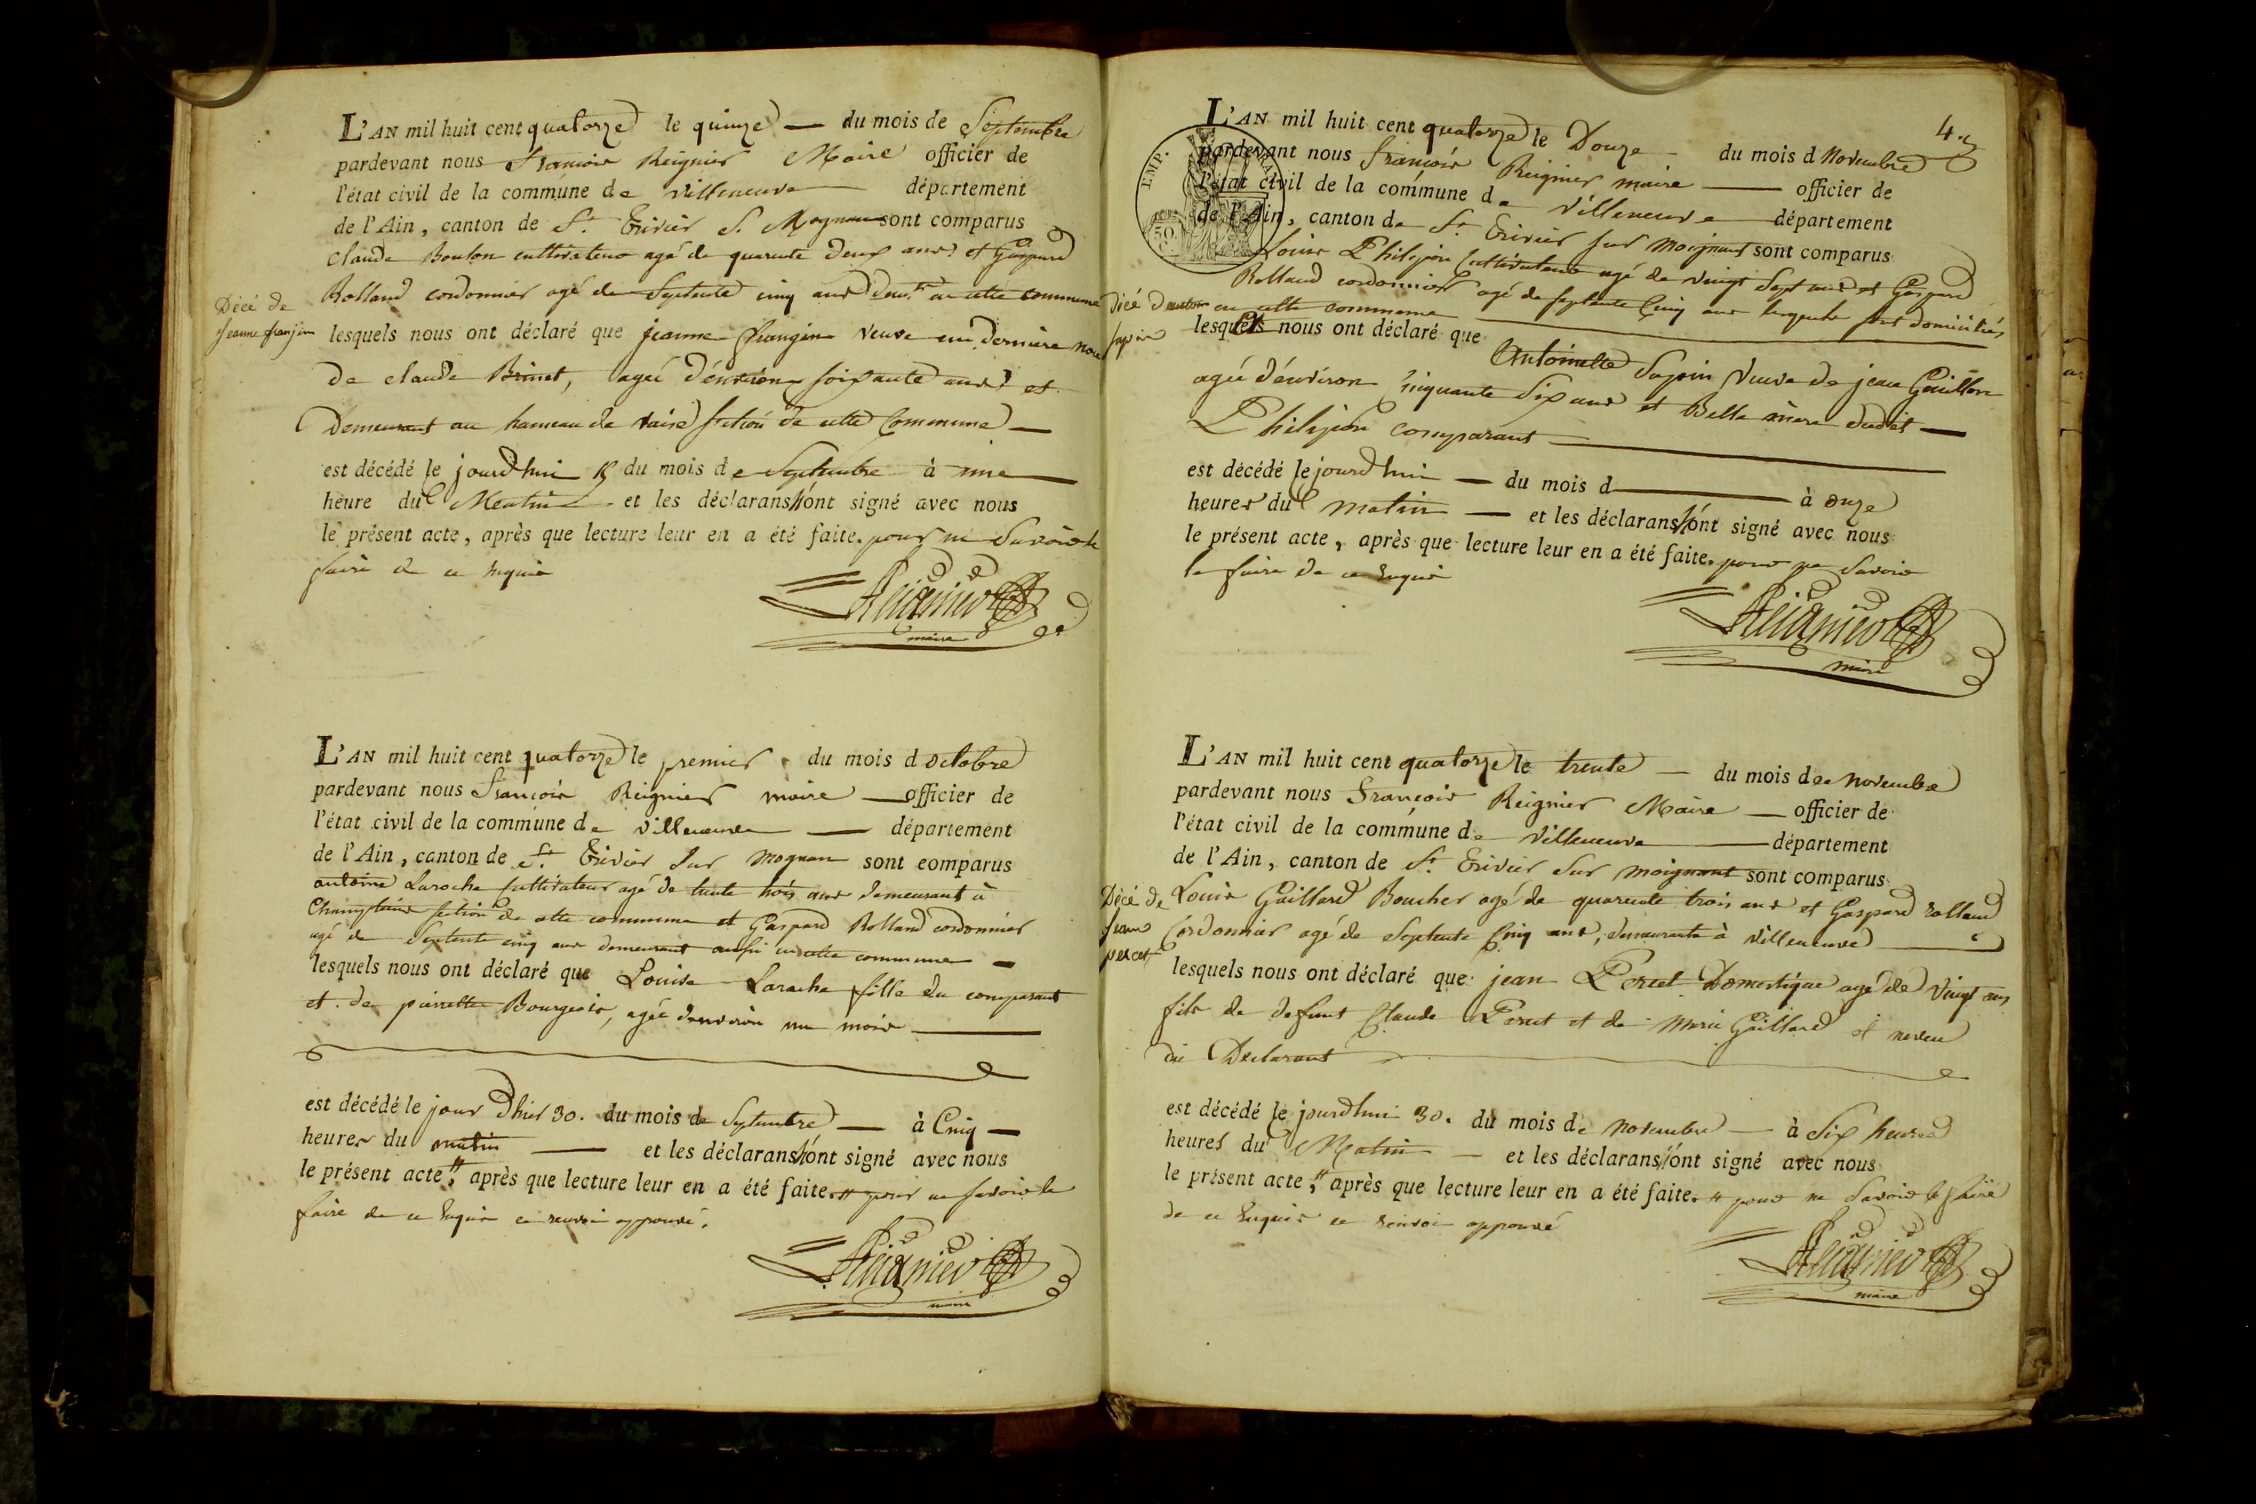 L'AN mil huit cent quatorze le quinze — du mois de Septembre
pardevant nous François Reignier Maire officier de
l'état civil de la commune de villeneuve — département
de l'Ain, canton de St. Trivier S. Mognan sont comparus
Claude Bouton cultivateur agé de quarente deux ans et Gaspard
Rolland cordonnier agé de Septente cinq ans en cette commune
Décé de
jeanne franjin
lesquels nous ont déclaré que jeanne frangin veuve en derniere noce
de claude Brinet, ageé d'environ soixante ans et
Demeurant au hameau de section de cette Commune —
est décédé le jourdhui 15 du mois de Septembre à une —
heure du Matin et les déclarans n'ont signé avec nous
le présent acte, après que lecture leur en a été faite. pour ne Savoir le
faire de ce requis
Reignier
maire
L'AN mil huit cent quatorze le premier du mois d octobre
pardevant nous François Reignier maire — officier de
l'état civil de la commune de villeneuve — département
de l'Ain, canton de St. Trivier Sur mognan sont comparus
antoine Laroche Cultivateur agé de trente trois ans demeurant à
section de cette commune et Gaspard Rolland cordonnier
agé de Septente cinq ans demeurant aussi en cette commune —
lesquels nous ont déclaré que Louise Laroche fille du comparant
et de pierrette Bourgeois, ageé denviron un mois —
est décédé le jour Dhier 30. du mois de Septembre — à Cinq —
heures du matin — et les déclarans n'ont signé avec nous
le présent acte, après que lecture leur en a été faite. pour ne savoir le
faire de ce requis ce renvoi approuvé.
Reignier
maire
4.
EMP.
L'AN mil huit cent quatorze le Douze — du mois d Novembre
pardevant nous François Reignier maire — officier de
l'état civil de la commune de villeneuve — département
de l'Ain, canton de St Trivier sur moignans sont comparus
Louis Philipon Cultivateur agé de vingt Sept ans et Gaspard
Rolland cordonnier agé de septente Cinq ans lesquels sont domiciliés
en cette commune —
sapin
lesquels nous ont déclaré que Antoinette Sapin Veuve de jean Gouillon
ageé d'environ Cinquante Six ans et Belle mère dudit —
Philipon comparant —
est décédé le jourdhui — du mois d — à onze
heures du matin — et les déclarans n'ont signé avec nous
le présent acte, après que lecture leur en a été faite. pour ne Savoir
le faire de ce requis
Reignier
maire
L'AN mil huit cent quatorze le trente — du mois de novembre
pardevant nous François Reignier Maire — officier de
l'état civil de la commune de villeneuve — département
de l'Ain, canton de St Trivier Sur moignant sont comparus
Décé de
jean
percet
Louis Gaillard Boucher agé de quarente trois ans et Gaspard rolland
Cordonnier agé de Septente Cinq ans, demeurants à villeneuve —
lesquels nous ont déclaré que jean Percet Domestique agé de vingt ans
fils de defunt Claude Percet et de Marie Gaillard et neveu
du Declarant
est décédé le jourdhui 30. du mois de novembre — à Six heures
heures du Matin — et les déclarans n'ont signé avec nous
le présent acte, après que lecture leur en a été faite. pour ne Savoir le faire
de ce requis ce renvoi approuvé
Reignier
maire